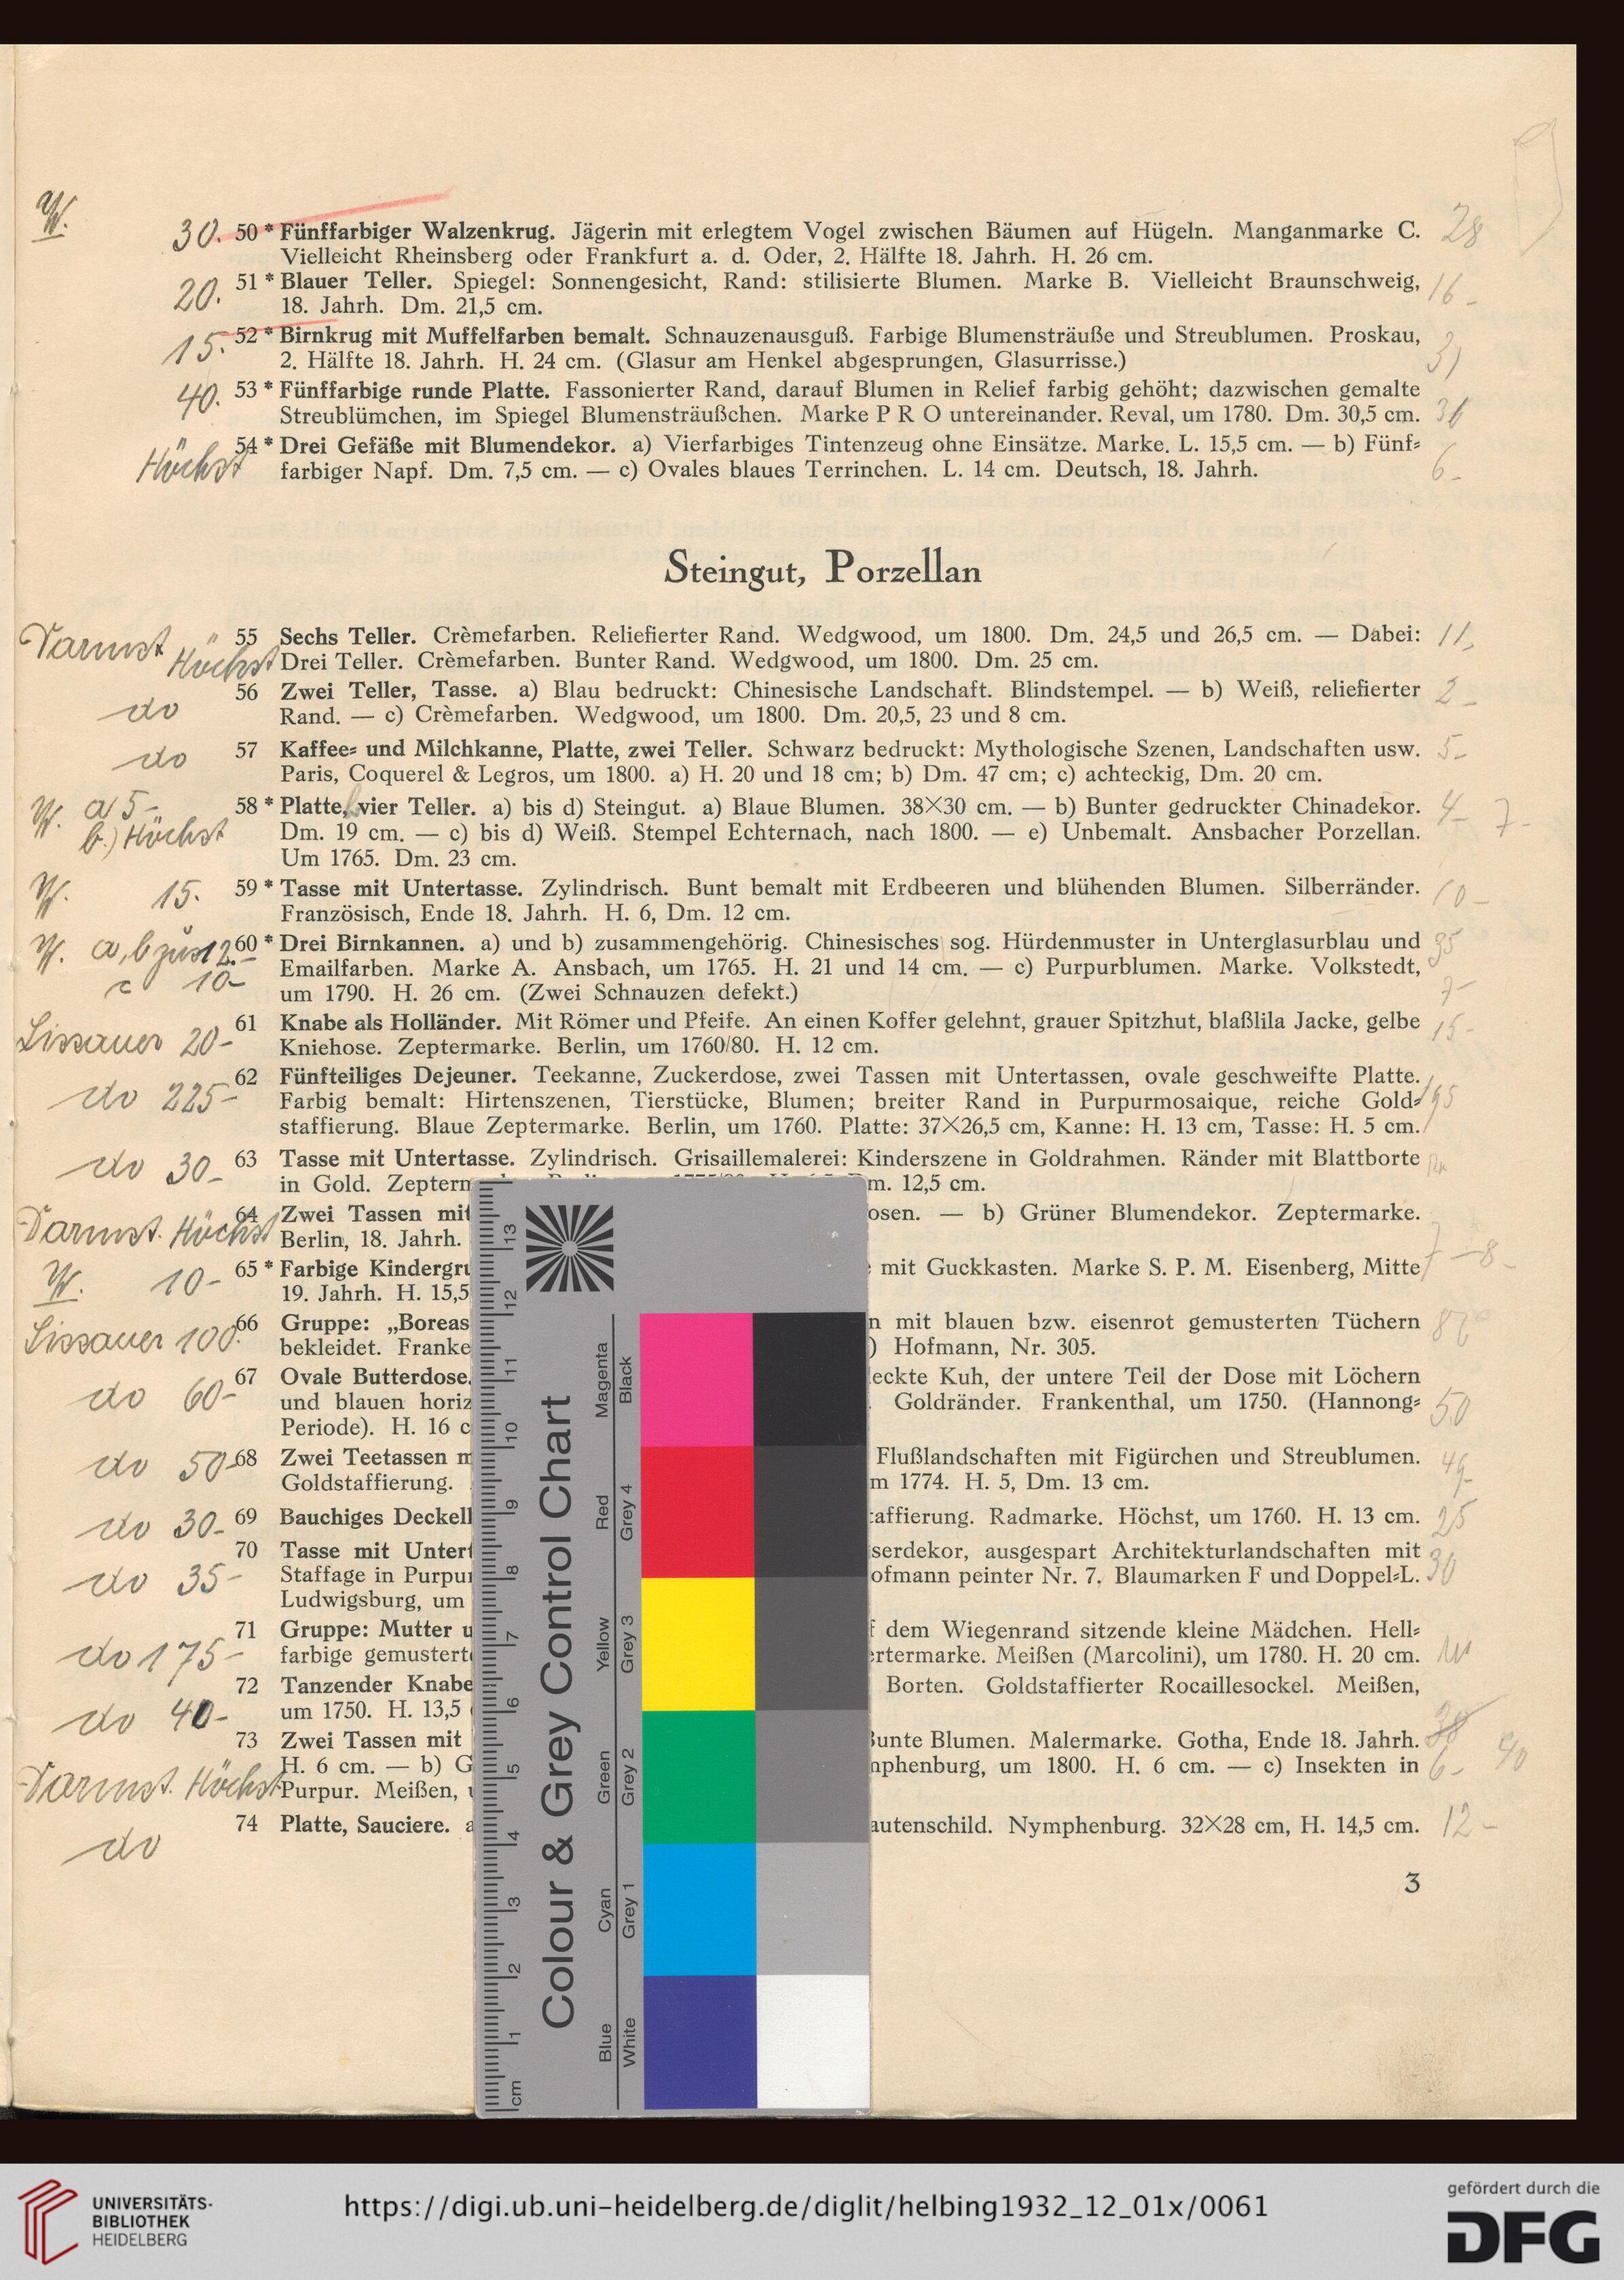 W.
30. 50 * Fünffarbiger Walzenkrug. Jägerin mit erlegtem Vogel zwischen Bäumen auf Hügeln. Manganmarke C. 28
Vielleicht Rheinsberg oder Frankfurt a. d. Oder, 2. Hälfte 18. Jahrh. H. 26 cm.
20. 51 * Blauer Teller. Spiegel: Sonnengesicht, Rand: stilisierte Blumen. Marke B. Vielleicht Braunschweig, 16-
18. Jahrh. Dm. 21,5 cm.
15. 52 * Birnkrug mit Muffelfarben bemalt. Schnauzenausguß. Farbige Blumensträuße und Streublumen. Proskau,
2. Hälfte 18. Jahrh. H. 24 cm. (Glasur am Henkel abgesprungen, Glasurrisse.)
40. 53 * Fünffarbige runde Platte. Fassonierter Rand, darauf Blumen in Relief farbig gehöht; dazwischen gemalte
Streublümchen, im Spiegel Blumensträußchen. Marke P R O untereinander. Reval, um 1780. Dm. 30,5 cm.
Höchst 54 * Drei Gefäße mit Blumendekor. a) Vierfarbiges Tintenzeug ohne Einsätze. Marke. L. 15,5 cm. — b) Fünf=
farbiger Napf. Dm. 7,5 cm. — c) Ovales blaues Terrinchen. L. 14 cm. Deutsch, 18. Jahrh. 6-
Steingut, Porzellan
Darmst. Höchst 55 Sechs Teller. Crèmefarben. Reliefierter Rand. Wedgwood, um 1800. Dm. 24,5 und 26,5 cm. — Dabei: 11,
Drei Teller. Crèmefarben. Bunter Rand. Wedgwood, um 1800. Dm. 25 cm.
do 56 Zwei Teller, Tasse. a) Blau bedruckt: Chinesische Landschaft. Blindstempel. — b) Weiß, reliefierter 2-
Rand. — c) Crèmefarben. Wedgwood, um 1800. Dm. 20,5, 23 und 8 cm.
do 57 Kaffee= und Milchkanne, Platte, zwei Teller. Schwarz bedruckt: Mythologische Szenen, Landschaften usw. 5-
Paris, Coquerel & Legros, um 1800. a) H. 20 und 18 cm; b) Dm. 47 cm; c) achteckig, Dm. 20 cm.
W. a) 5- 58 * Platte, vier Teller. a) bis d) Steingut. a) Blaue Blumen. 38×30 cm. — b) Bunter gedruckter Chinadekor. 4- 7-
b.) Höchst Dm. 19 cm. — c) bis d) Weiß. Stempel Echternach, nach 1800. — e) Unbemalt. Ansbacher Porzellan.
Um 1765. Dm. 23 cm.
W. 15. 59 * Tasse mit Untertasse. Zylindrisch. Bunt bemalt mit Erdbeeren und blühenden Blumen. Silberränder. 10-
Französisch, Ende 18. Jahrh. H. 6, Dm. 12 cm.
W. a, b 60 * Drei Birnkannen. a) und b) zusammengehörig. Chinesisches sog. Hürdenmuster in Unterglasurblau und 35
Emailfarben. Marke A. Ansbach, um 1765. H. 21 und 14 cm. — c) Purpurblumen. Marke. Volkstedt,
c 10- um 1790. H. 26 cm. (Zwei Schnauzen defekt.) 7-
Lissauer 20- 61 Knabe als Holländer. Mit Römer und Pfeife. An einen Koffer gelehnt, grauer Spitzhut, blaßlila Jacke, gelbe 15-
Kniehose. Zeptermarke. Berlin, um 1760/80. H. 12 cm.
do 225- 62 Fünfteiliges Dejeuner. Teekanne, Zuckerdose, zwei Tassen mit Untertassen, ovale geschweifte Platte.
Farbig bemalt: Hirtenszenen, Tierstücke, Blumen; breiter Rand in Purpurmosaique, reiche Gold= 195
staffierung. Blaue Zeptermarke. Berlin, um 1760. Platte: 37×26,5 cm, Kanne: H. 13 cm, Tasse: H. 5 cm.
do 30- 63 Tasse mit Untertasse. Zylindrisch. Grisaillemalerei: Kinderszene in Goldrahmen. Ränder mit Blattborte
in Gold. Zeptern m. 12,5 cm.
Darmst. Höchst 64 Zwei Tassen mit osen. — b) Grüner Blumendekor. Zeptermarke.
Berlin, 18. Jahrh. 
W. 10- 65 * Farbige Kindergru mit Guckkasten. Marke S. P. M. Eisenberg, Mitte 7- 8-
19. Jahrh. H. 15,5
Lissauer 100. 66 Gruppe: „Boreas n mit blauen bzw. eisenrot gemusterten Tüchern
bekleidet. Franke ) Hofmann, Nr. 305.
do 60- 67 Ovale Butterdose. eckte Kuh, der untere Teil der Dose mit Löchern
und blauen horiz . Goldränder. Frankenthal, um 1750. (Hannong= 50
Periode). H. 16 c
do 50- 68 Zwei Teetassen m Flußlandschaften mit Figürchen und Streublumen.
Goldstaffierung. m 1774. H. 5, Dm. 13 cm.
do 30- 69 Bauchiges Deckell affierung. Radmarke. Höchst, um 1760. H. 13 cm. 25
70 Tasse mit Untert serdekor, ausgespart Architekturlandschaften mit 30
do 35- Staffage in Purpur ofmann peinter Nr. 7. Blaumarken F und Doppel=L.
Ludwigsburg, um
71 Gruppe: Mutter u f dem Wiegenrand sitzende kleine Mädchen. Hell=
do 175- farbige gemusterte ertermarke. Meißen (Marcolini), um 1780. H. 20 cm.
72 Tanzender Knabe Borten. Goldstaffierter Rocaillesockel. Meißen,
do 40- um 1750. H. 13,5 38
73 Zwei Tassen mit Bunte Blumen. Malermarke. Gotha, Ende 18. Jahrh.
H. 6 cm. — b) G nphenburg, um 1800. H. 6 cm. — c) Insekten in 6- 40
Darmst. Höchst Purpur. Meißen, u
74 Platte, Sauciere. a autenschild. Nymphenburg. 32×28 cm, H. 14,5 cm. 12-
do
3
Colour & Grey Control Chart
Magenta Red Yellow Green Cyan Blue
Black Grey 4 Grey 3 Grey 2 Grey 1 White
13 12 11 10 9 8 7 6 5 4 3 2 1 cm
UNIVERSITÄTS-
BIBLIOTHEK
HEIDELBERG
https://digi.ub.uni-heidelberg.de/diglit/helbing1932_12_01x/0061
gefördert durch die
DFG